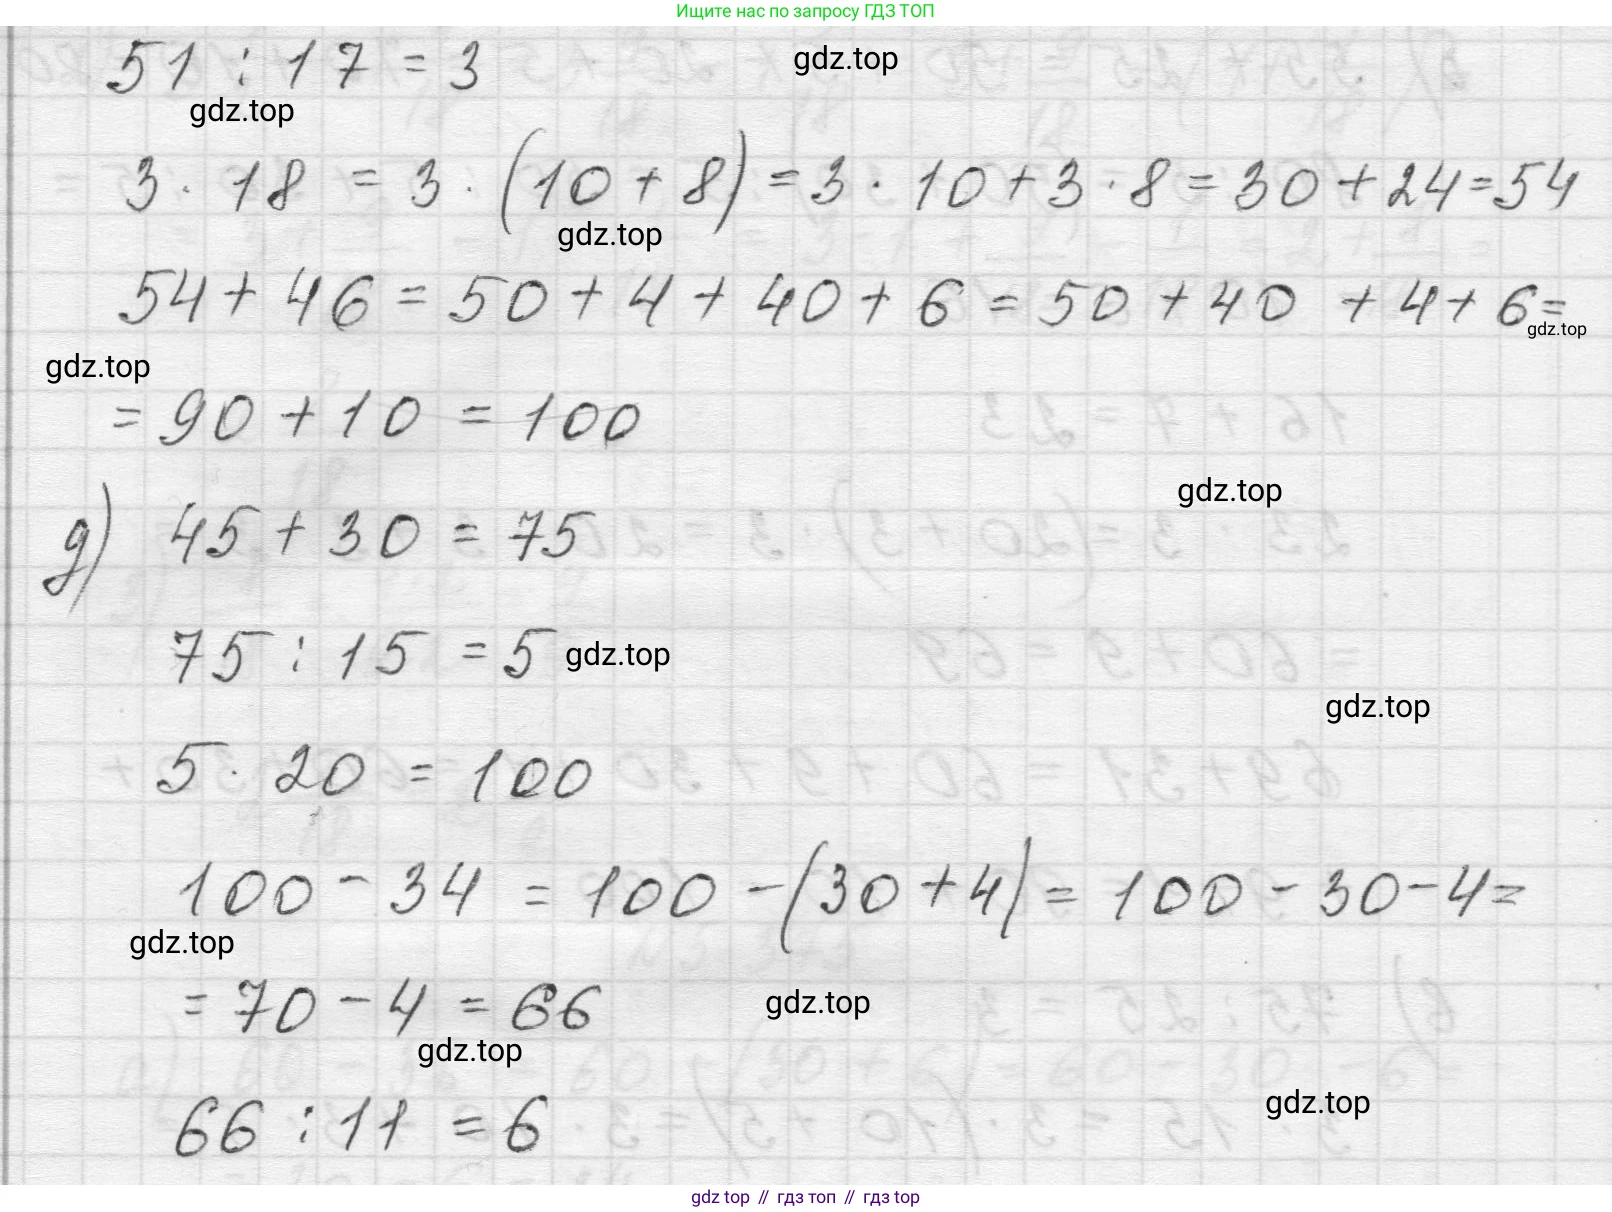 Ищите нас по запросу ГДЗ ТОП
51 : 17 = 3
gdz.top
gdz.top
3 · 18 = 3 · (10 + 8) = 3 · 10 + 3 · 8 = 30 + 24 = 54
gdz.top
54 + 46 = 50 + 4 + 40 + 6 = 50 + 40 + 4 + 6 =
gdz.top
gdz.top
= 90 + 10 = 100
gdz.top
д) 45 + 30 = 75
75 : 15 = 5
gdz.top
gdz.top
5 · 20 = 100
100 - 34 = 100 - (30 + 4) = 100 - 30 - 4 =
gdz.top
= 70 - 4 = 66
gdz.top
gdz.top
66 : 11 = 6
gdz.top
gdz top // гдз топ // гдз top